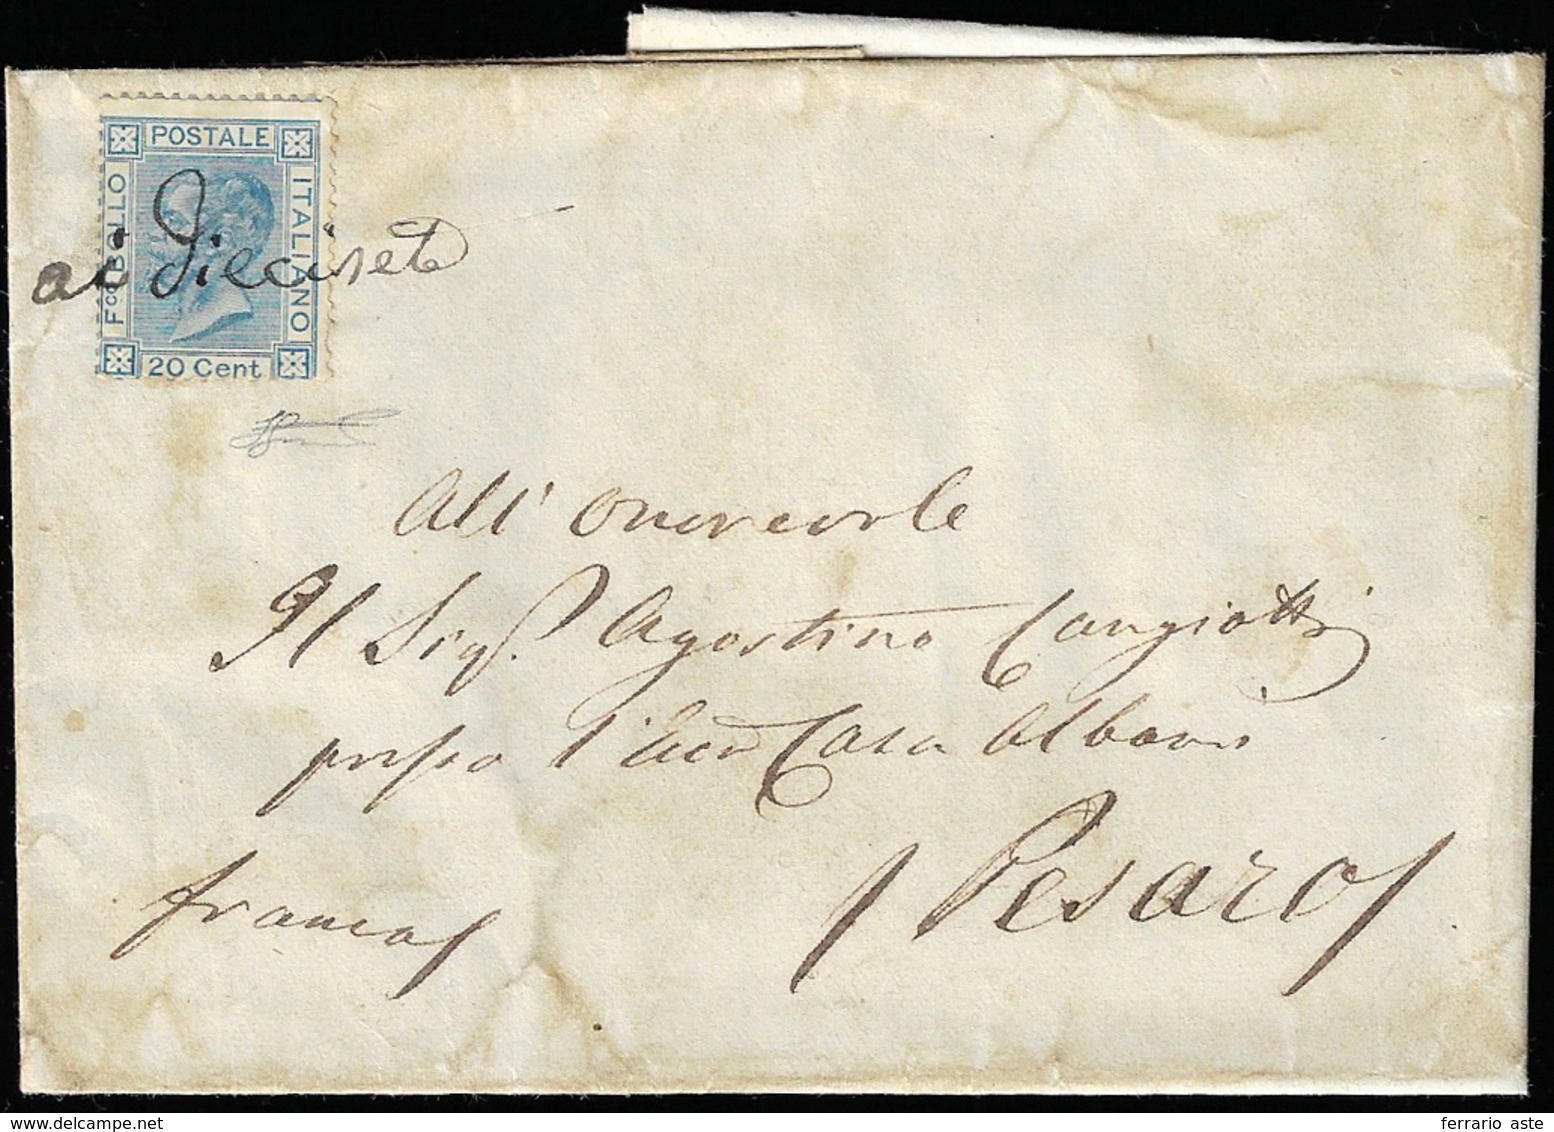 POSTALE
Fco BOLLO
ITALIANO
20 Cent
ai Diecisete
All' Onorevole
Il Sigr. Agostino Cangiotti
presso l' Ecc Casa Albani
Pesaro
franca
ferrario aste